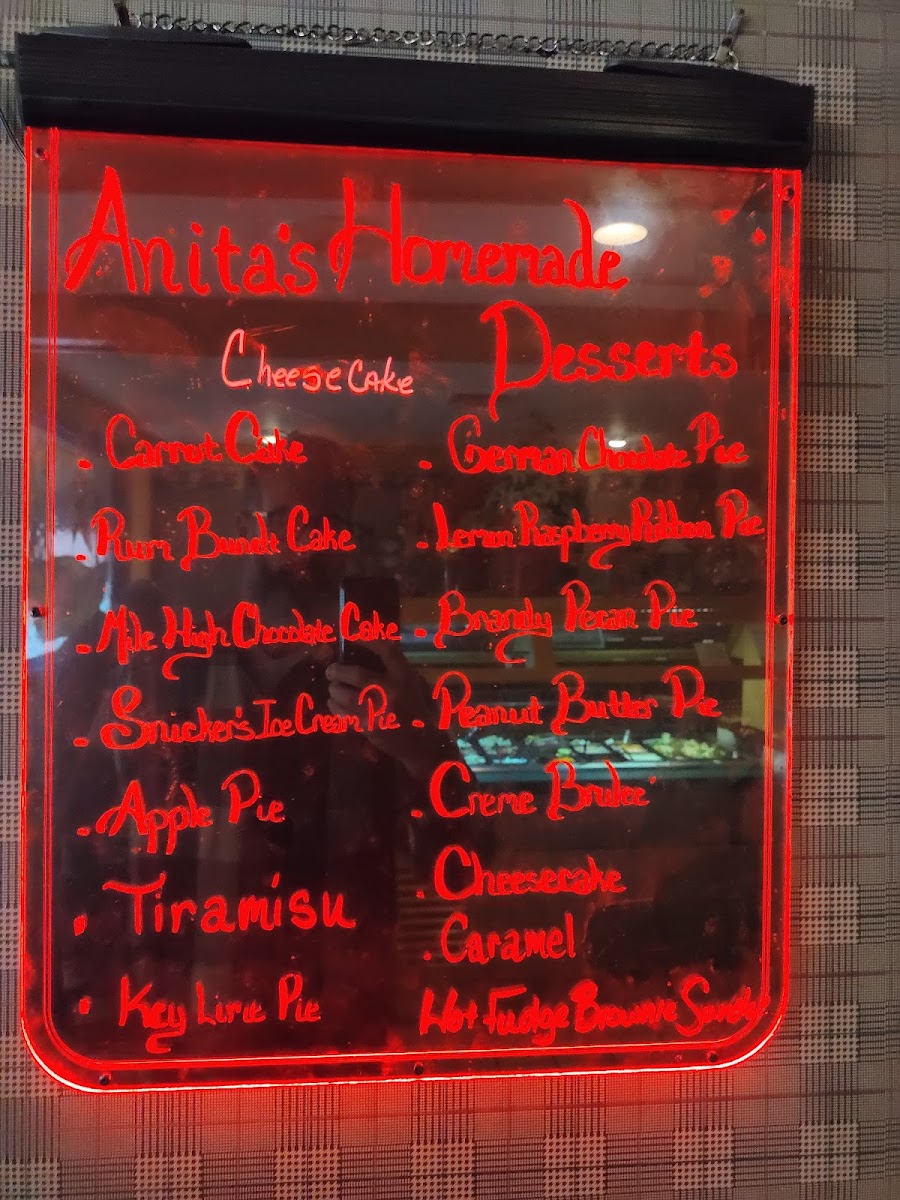 Anita's Homemade
Desserts
CheeseCake
. Carrot Cake
. Rum Bundt Cake
. Mile High Chocolate Cake
. Snicker's Ice Cream Pie
. Apple Pie
. Tiramisu
. Key Lime Pie
. German Chocolate Pie
. Lemon Raspberry Ribbon Pie
. Brandy Pecan Pie
. Peanut Butter Pie
. Creme Brulee'
. Cheesecake
. Caramel
Hot Fudge Brownie Sundae